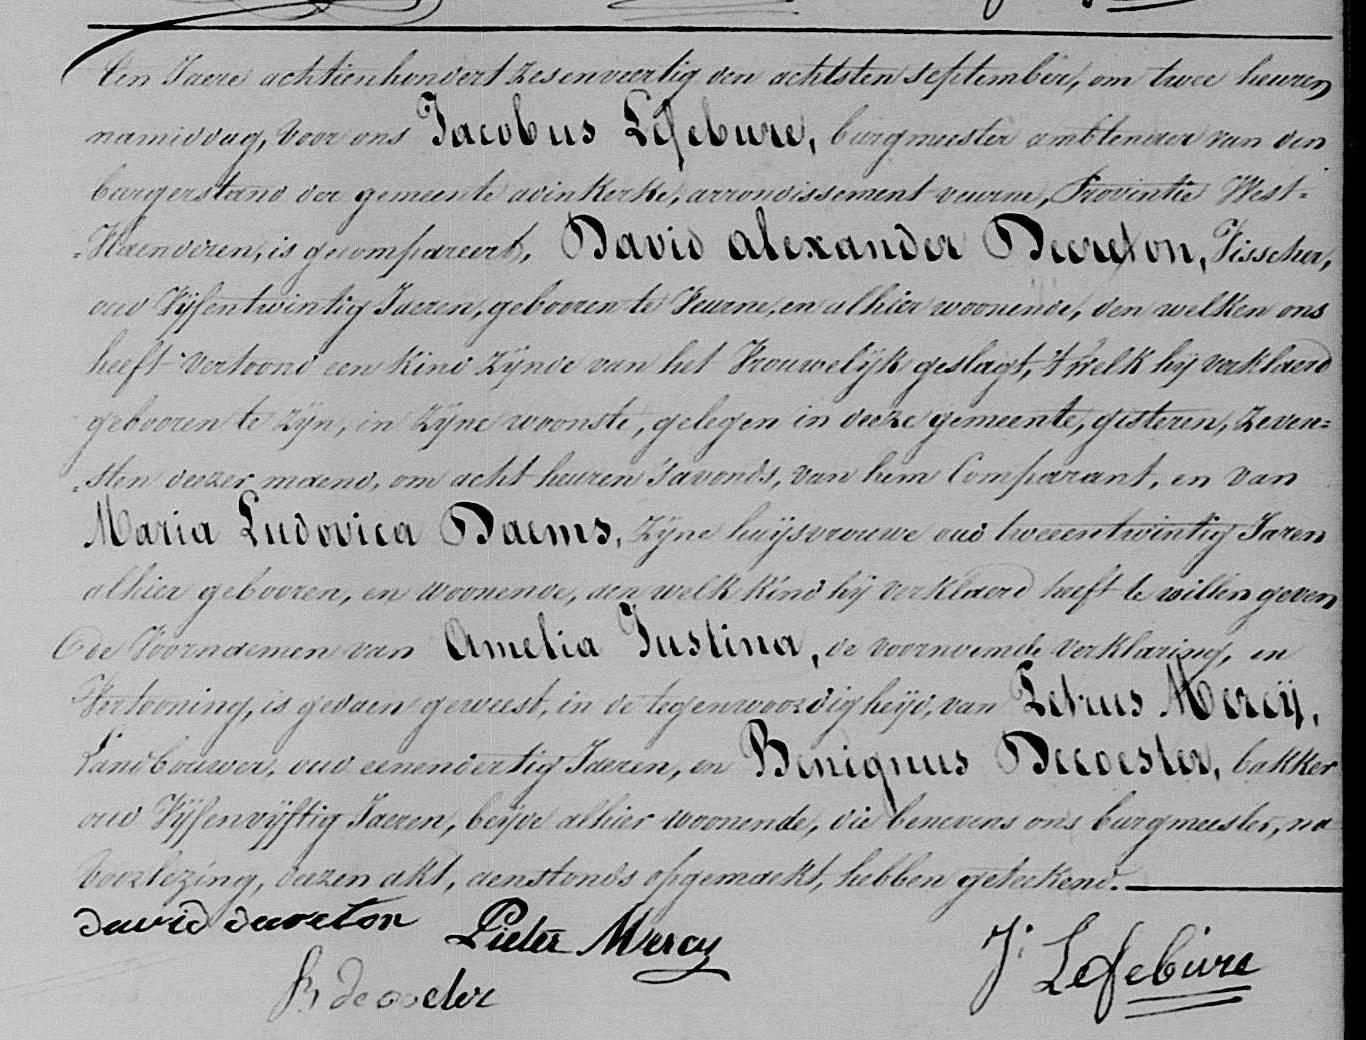 Een Jaere achtienhondert zesenveertig den achtsten september, om twee heuren
namiddag, voor ons Jacobus Lefebure, burgmeester ambtenaer van den
burgerstand der gemeente adinkerke, arrondissement veurne, Provintie West-
-Vlaenderen, is gecompareert, David alexander Decreton, Visscher,
oud Vijfentwintig Jaeren, gebooren te Veurne, en alhier woonende, den welken ons
heeft vertoond een kind zijnde van het Vrouwelijk geslagt, 't welk hij verklaerd
gebooren te zijn, in zijne woonste, gelegen in deeze gemeente, gisteren, zeven=
-sten deezer maend, om acht heuren 'savonds, van hem Comparant, en van
Maria Ludovica Daems, zijne huijsvrouwe oud tweeentwintig Jaren
alhier gebooren, en woonende, aen welk kind hij verklaerd heeft te willen geven
de Voornaemen van Amelia Justina, de voornoemde verklaring, en
Vertooning, is gedaen geweest, in de tegenwoordigheijd, van Petrus Mercij,
Landbouwer, oud eenendertig Jaeren, en Benignus Decoester, bakker
oud Vijfenvijftig Jaeren, beijde alhier woonende, die benevens ons burgmeester, na
Voorlezing, deezen akt, aenstonds opgemaekt, hebben geteekend.
david decreton Pieter Mercy J. Lefebure
B decoster